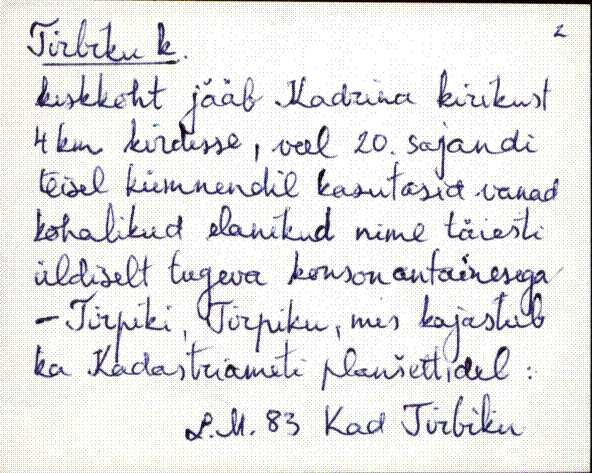 Tirbiku k. 2
keskkoht jääb Kadrina kirikust
4 km kirdesse, veel 20. sajandi
teisel kümnendil kasutasid vanad
kohalikud elanikud nime täiesti
üldiselt tugeva konsonantainesega
- Tirpiki, Tirpiku, mis kajastub
ka Kadastriameti planšettidel :
L.M. 83 Kad Tirbiku